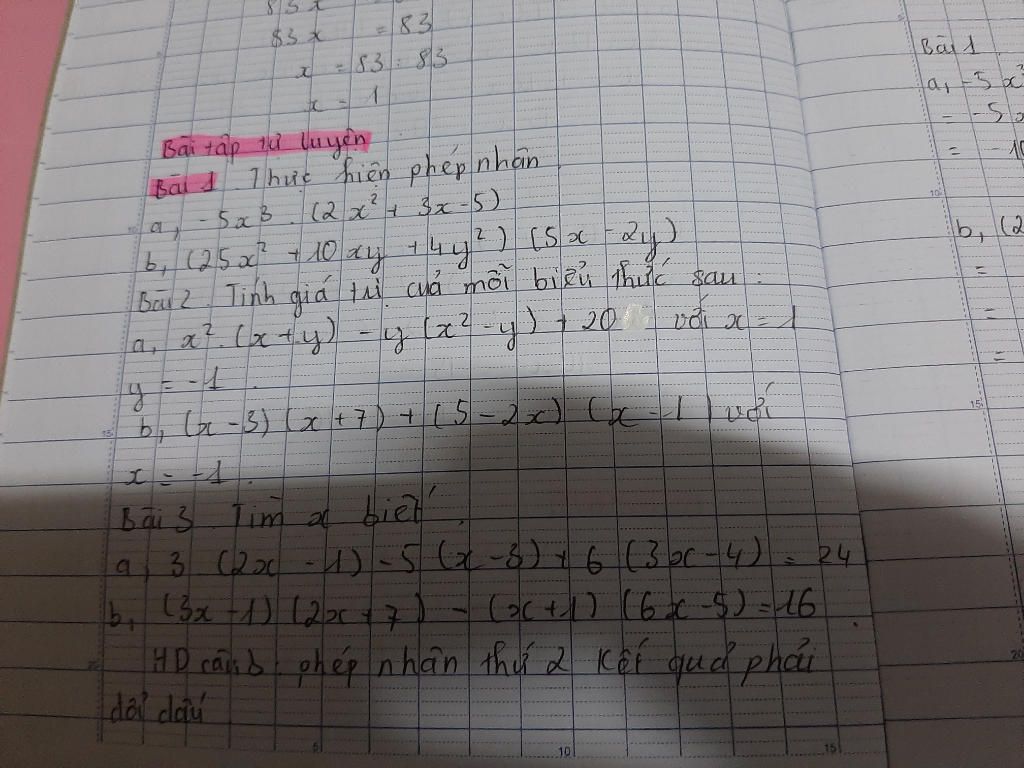 83x
83x = 83
x = 83 : 83
x = 1
Bài tập tự luyện
Bài 1. Thực hiện phép nhân
a, -5x³ . (2x² + 3x - 5)
b, (25x² + 10xy + 4y²) (5x - 2y)
Bài 2. Tính giá trị của mỗi biểu thức sau :
a, x² . (x + y) - y (x² - y) + 20 với x = 1
y = -1 .
b, (x - 3) (x + 7) + (5 - 2x) (x - 1) với
x = -1 .
Bài 3 Tìm x biết .
a, 3 (2x - 1) - 5 (x - 3) + 6 (3x - 4) = 24
b, (3x - 1) (2x + 7) - (x + 1) (6x - 5) = 16 .
HD câu b : phép nhân thứ 2 kết quả phải
đổi dấu
5 10 15
Bài 1
a, -5x³
= -5x
= -10
b, (2
=
=
=